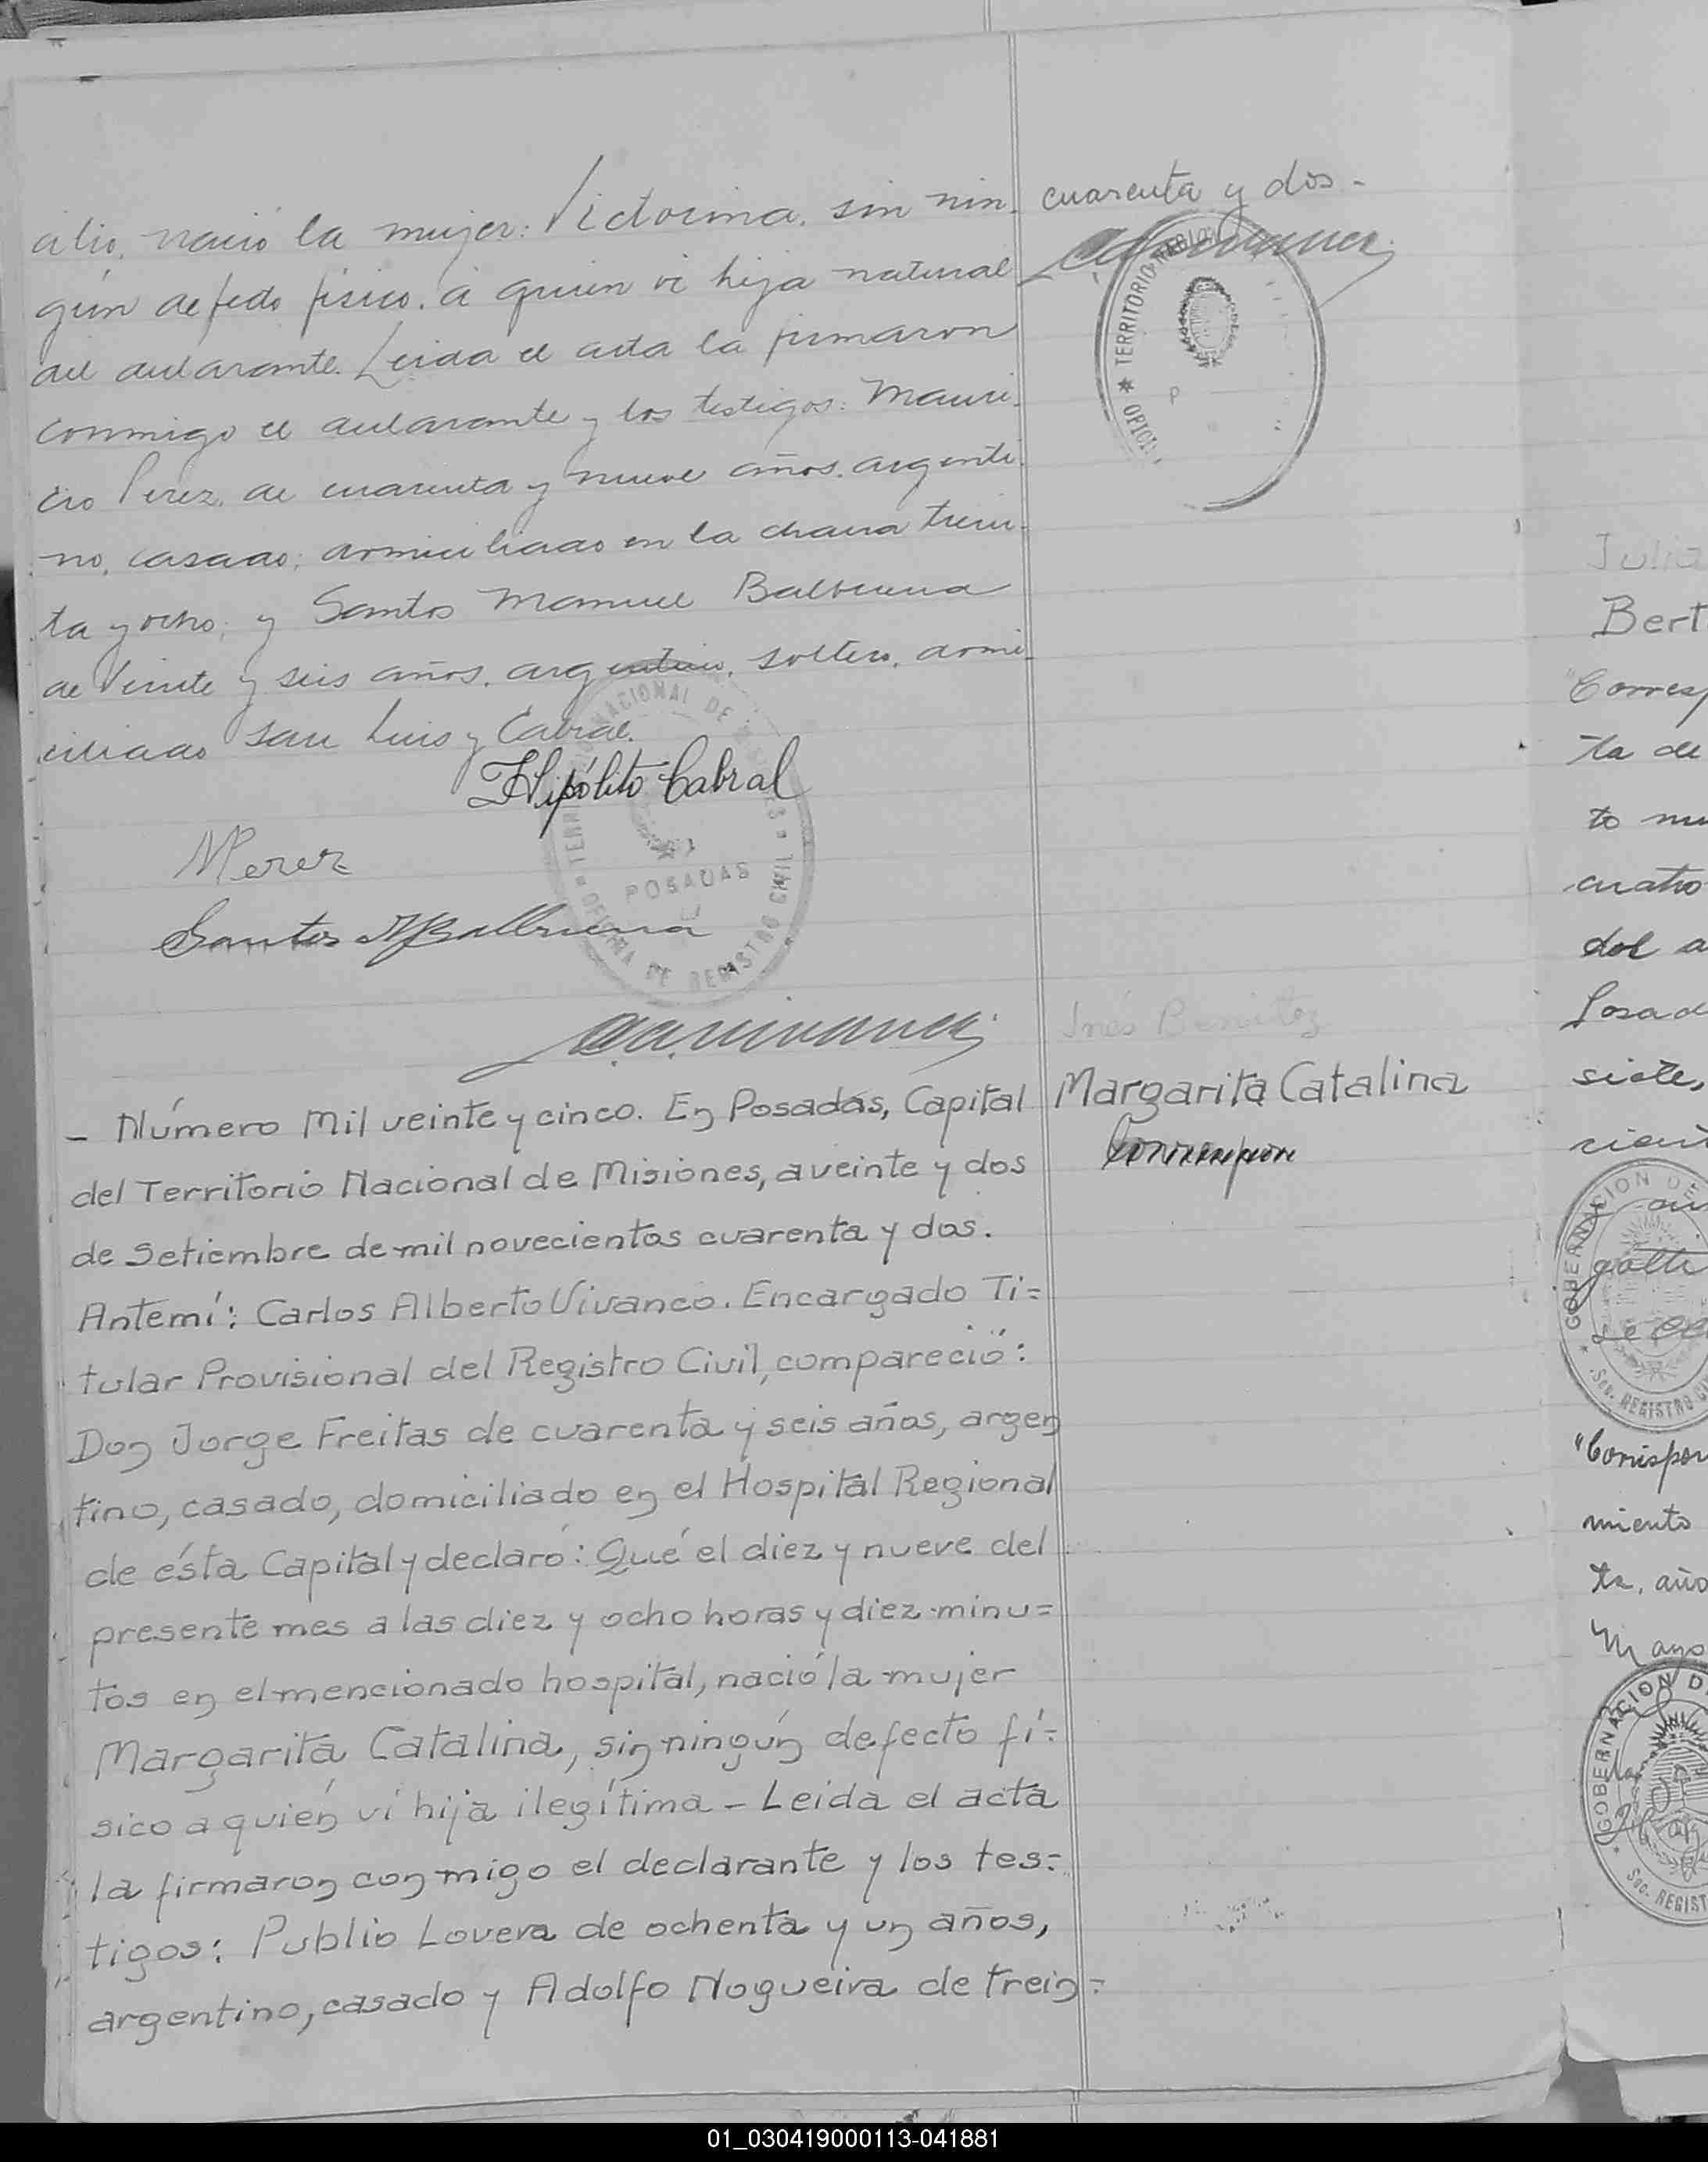 cilio, nació la mujer: Victorina, sin nin-
gún defecto físico, á quien vi hija natural
del declarante. Leida el acta la firmaron
conmigo el declarante y los testigos: Mauri-
cio Perez, de cuarenta y nueve años, argenti-
no, casado, domiciliado en la chacra trein-
ta y ocho; y Santos Manuel Balbuena
de veinte y seis años, argentino, soltero, domi-
ciliado San Luis y Cabral.
Hipólito Cabral
MPerez
Santos MBalbuena
TERRITORIO NACIONAL DE MISIONES
POSADAS
OFICINA DE REGISTRO CIVIL
— Número Mil veinte y cinco. En Posadas, Capital
del Territorio Nacional de Misiones, a veinte y dos
de Setiembre de mil novecientos cuarenta y dos.
Antemí: Carlos Alberto Vivanco. Encargado Ti=
tular Provisional del Registro Civil, compareció:
Don Jorge Freitas de cuarenta y seis años, argen
tino, casado, domiciliado en el Hospital Regional
de ésta Capital y declaró: Qué el diez y nueve del
presente mes a las diez y ocho horas y diez minu=
tos en el mencionado hospital, nació la mujer
Margarita Catalina, sin ningún defecto fí=
sico a quién ví hija ilegítima — Leida el acta
la firmaron conmigo el declarante y los tes=
tigos: Publio Lovera de ochenta y un años,
argentino, casado y Adolfo Nogueira de trein=
cuarenta y dos.-
TERRITORIO NACION
OFICI
Inés Benitez
Margarita Catalina
Julia
Bert
"Corresp
ta de
to nu
cuatro
del a
Posad
siete,
GOBERNACION DE
Sec. REGISTRO CI
"Corrispon
miento
ta, año
Mayo
GOBERNACION D
Sec. REGIST
01_030419000113-041881